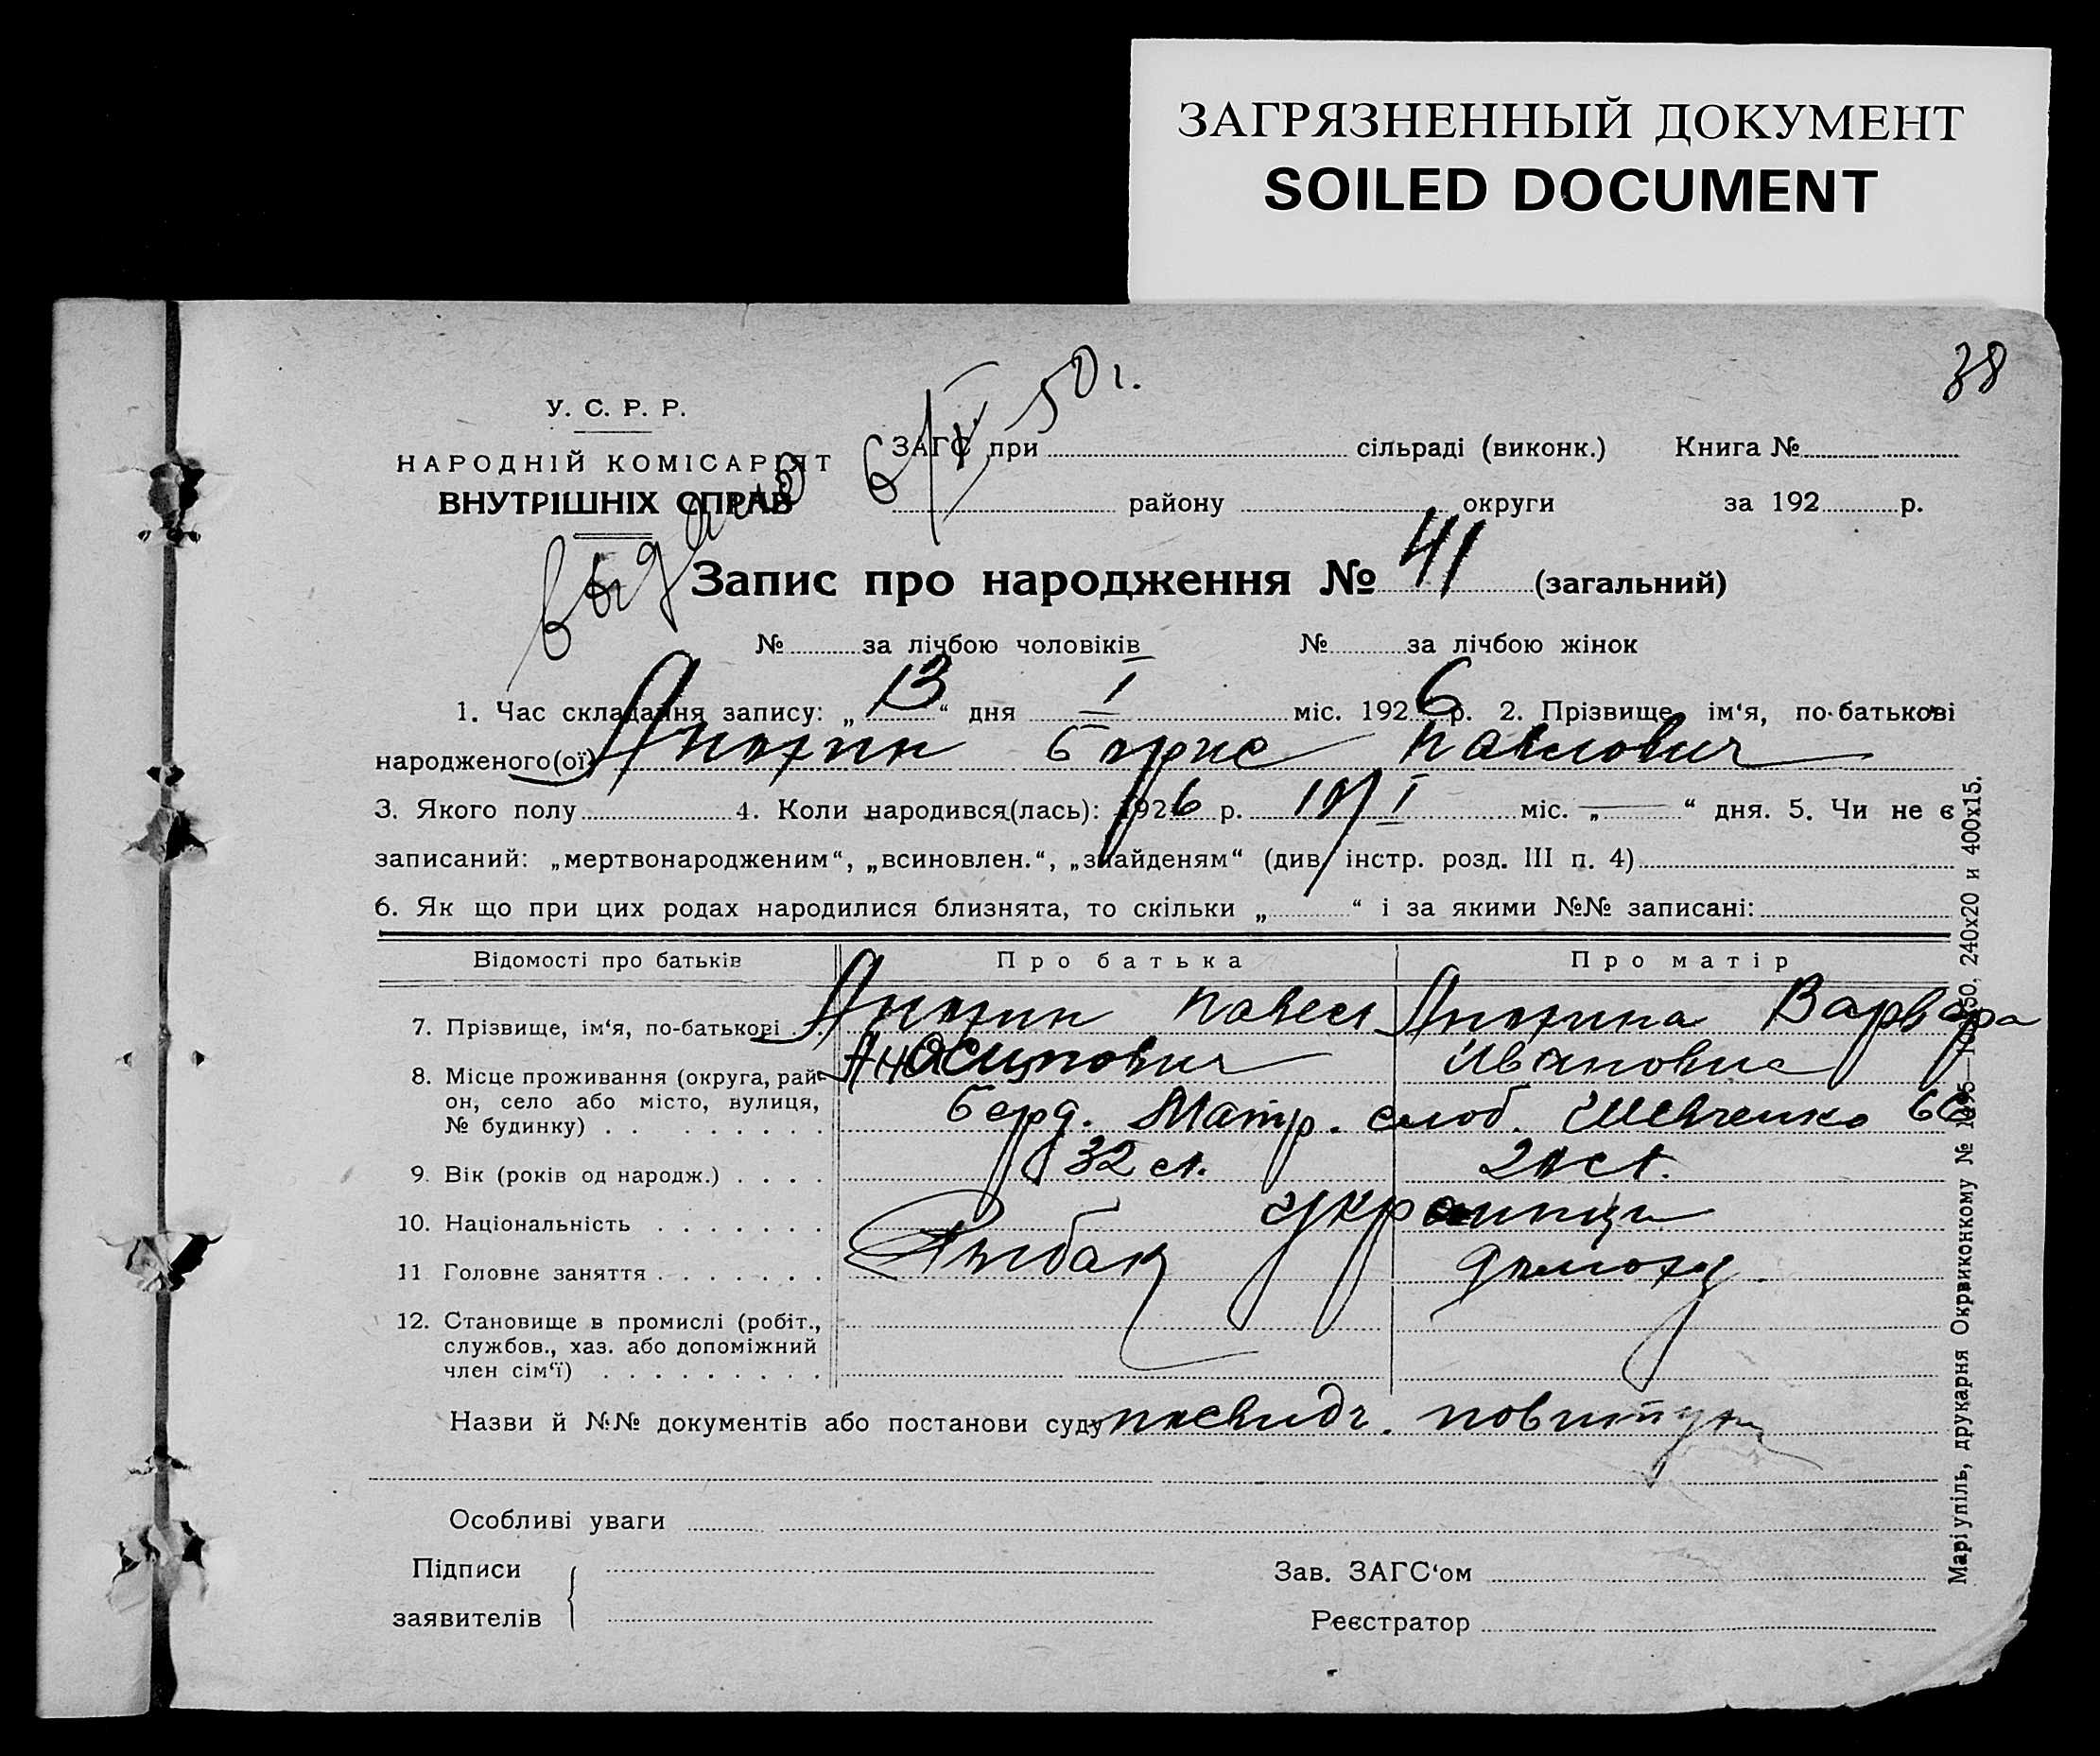 ЗАГРЯЗНЕННЫЙ ДОКУМЕНТ
SOILED DOCUMENT
38
У. С. Р. Р.
НАРОДНІЙ КОМІСАРІЯТ
ВНУТРІШНІХ СПРАВ
выдано 6/IV 50 г.
ЗАГС при сільраді (виконк.) Книга №
району округи за 192 р.
Запис про народження № 41 (загальний)
№ за лічбою чоловіків № за лічбою жінок
1. Час складання запису: „13“ дня I міс. 1926 р. 2. Прізвище, ім‘я, по-батькові
народженого(ої) Анохин Борис Павлович
3. Якого полу 4. Коли народився(лась): 1926 р. 10/I міс. „—“ дня. 5. Чи не є
записаний: „мертвонародженим“, „всиновлен.“, „знайденям“ (див. інстр. розд. III п. 4)
6. Як що при цих родах народилися близнята, то скільки „ “ і за якими №№ записані:
Відомості про батьків Про батька Про матір
7. Прізвище, ім‘я, по-батькові Анохин Павел Анохина Варвара
Ивановна
8. Місце проживання (округа, рай-
он, село або місто, вулиця,
№ будинку) Берд. Матр. слоб. Шевченко 66
9. Вік (років од народж.) 32 л.
10. Національність Украинцы
11 Головне заняття Рыбак домохоз.
12. Становище в промислі (робіт.,
службов., хаз. або допоміжний
член сім‘ї)
Назви й №№ документів або постанови суду посвидч. повитухи
Особливі уваги
Підписи
заявителів
Зав. ЗАГС‘ом
Реєстратор
Маріупіль, друкарня Окрвиконкому № 240х20 и 400х15.